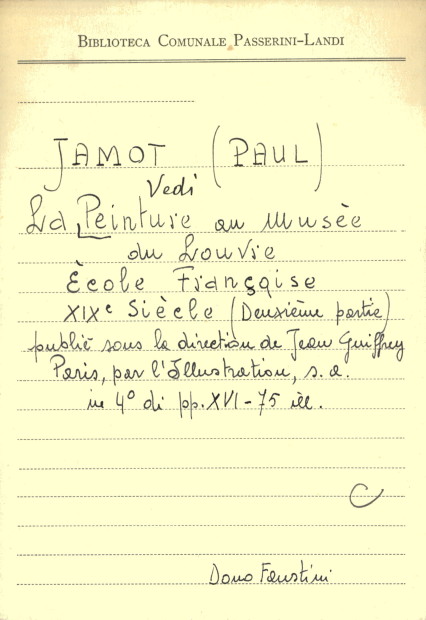 BIBLIOTECA COMUNALE PASSERINI-LANDI
JAMOT (PAUL)
Vedi
La Peinture au Musèe
du Louvre
École Française
XIXe Siècle (Deuxième partie)
publié sous la direction de Jean Guiffrey
Paris, par l'Illustration, s. a.
in 4° di pp. XVI - 75 ill.
C
Dono Faustini